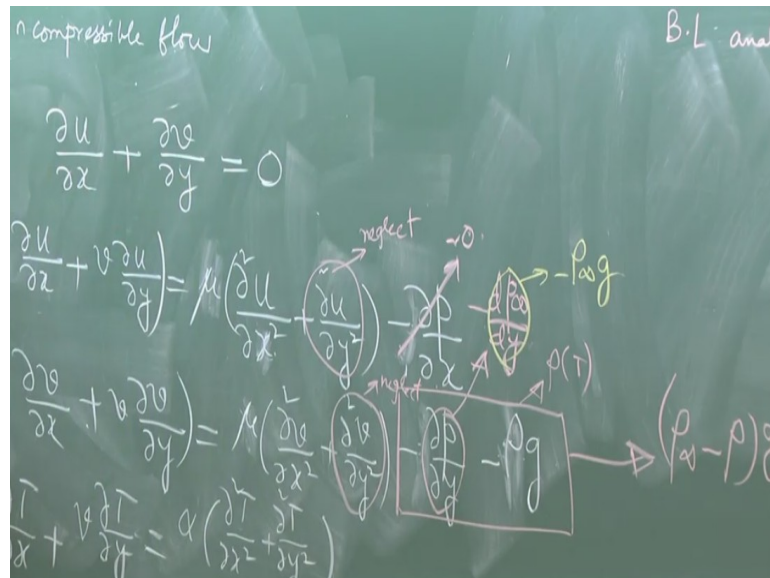 ncompressible flow B.L. anal
∂u/∂x + ∂v/∂y = 0
∂u/∂x + v ∂u/∂y) = μ(∂²u/∂x² + ∂²u/∂y²) - ∂p/∂x - dp∞/dy → -ρ∞g
neglect ~0.
∂v/∂x + v ∂v/∂y) = μ(∂²v/∂x² + ∂²v/∂y²) - ∂p/∂y - ρg → (ρ∞ - ρ)g
neglect ρ(T)
T/∂x + v ∂T/∂y = α(∂²T/∂x² + ∂²T/∂y²)